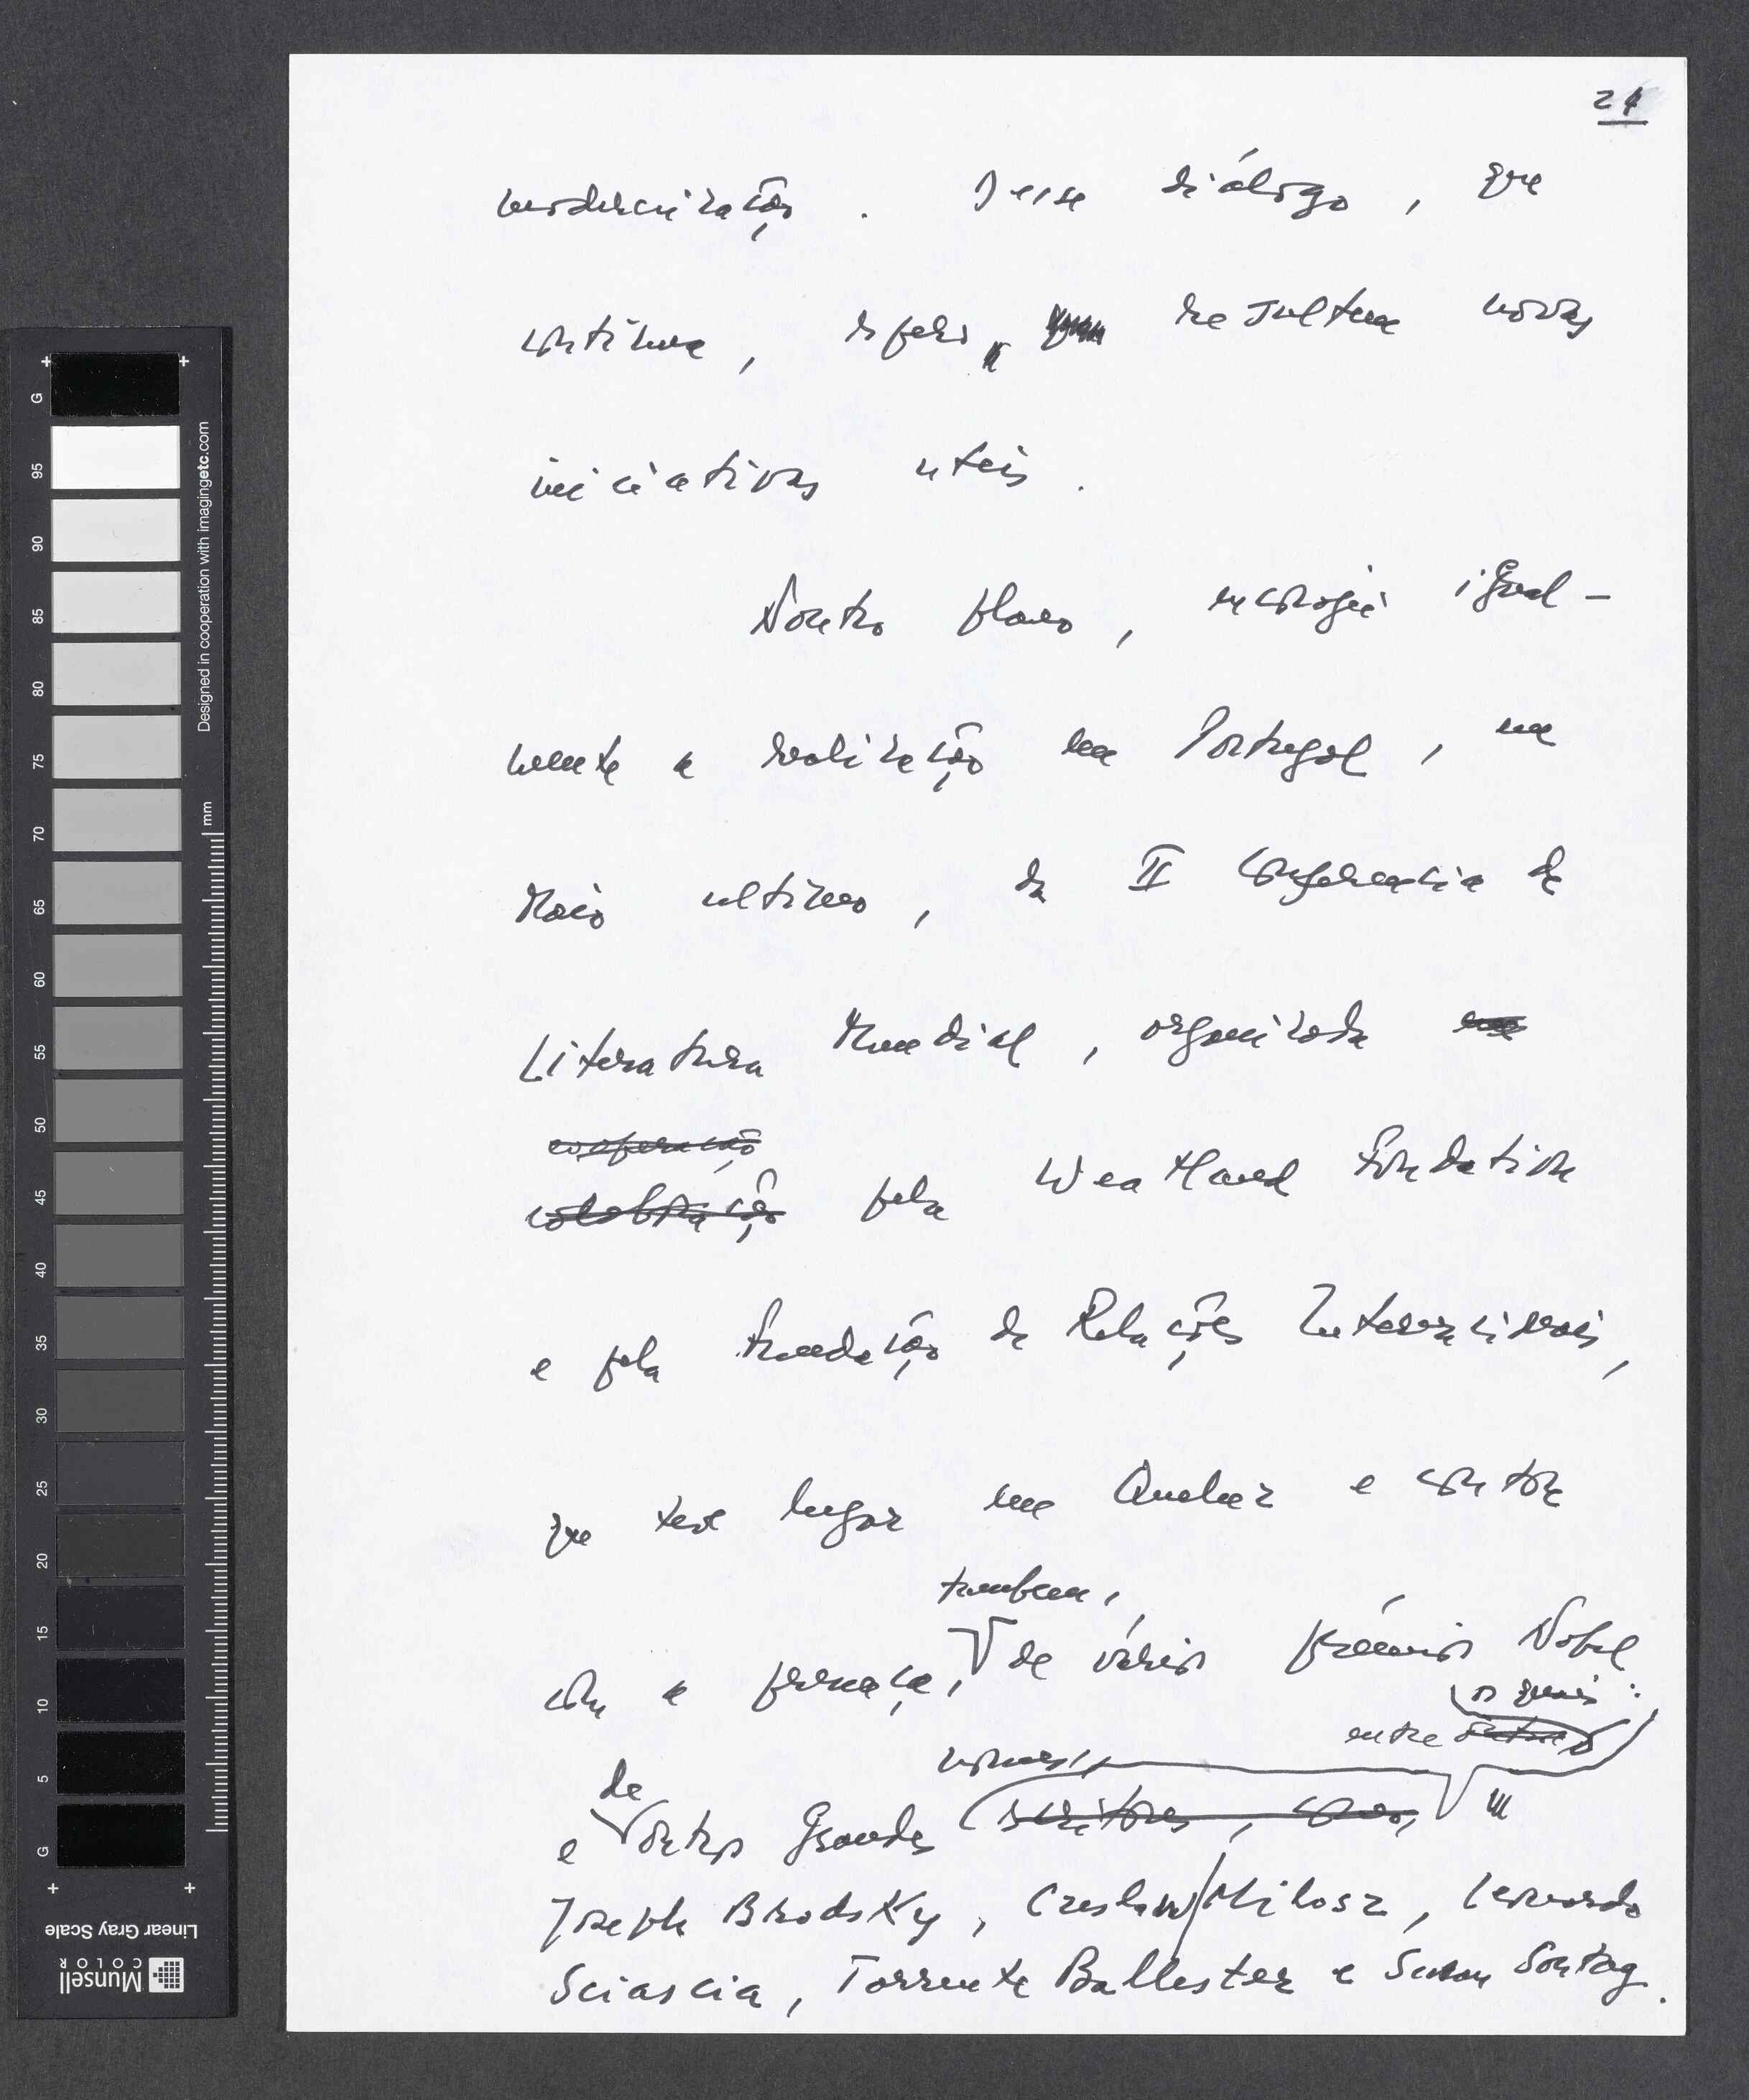 24
modernização. Desse diálogo, que
continua, espero, resultem novas
iniciativas uteis.
Noutro plano, encorajei igual-
mente a realização em Portugal, em
Maio ultimo, da II Conferencia de
Literatura Mundial, organizada
cooperação
colaboração pela Weatland Fondation
e pela Fundação de Relações Internacionais,
que teve lugar em Queluz e contou
tambem,
com a presença, de vários prémios Nobel
os quais:
entre outros
nomes,
de
e outros grandes escritores, como,
Joseph Brodsky, Czeslaw/Milosz, Leonardo
Sciascia, Torrente Ballester e Susan Sontag.
G
95
90
85
80
75
70
65
60
55
50
45
40
35
30
25
20
15
10
5
G
mm
Designed in cooperation with imagingetc.com
Linear Gray Scale
Munsell
COLOR